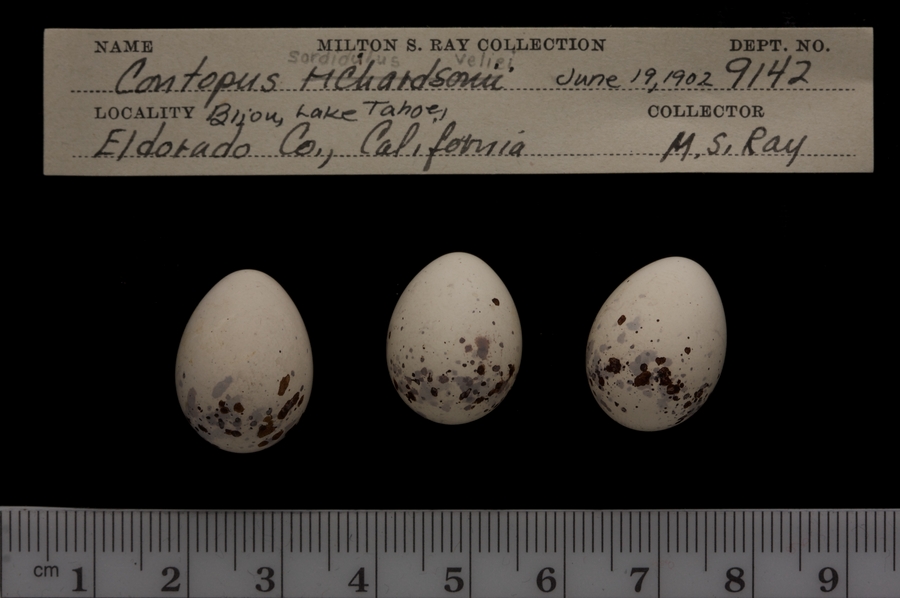 NAME MILTON S. RAY COLLECTION DEPT. NO.
sordidulus veliei
Contopus richardsonii June 19, 1902 9142
LOCALITY Bijou, Lake Tahoe, COLLECTOR
Eldorado Co., California M. S. Ray
cm 1 2 3 4 5 6 7 8 9